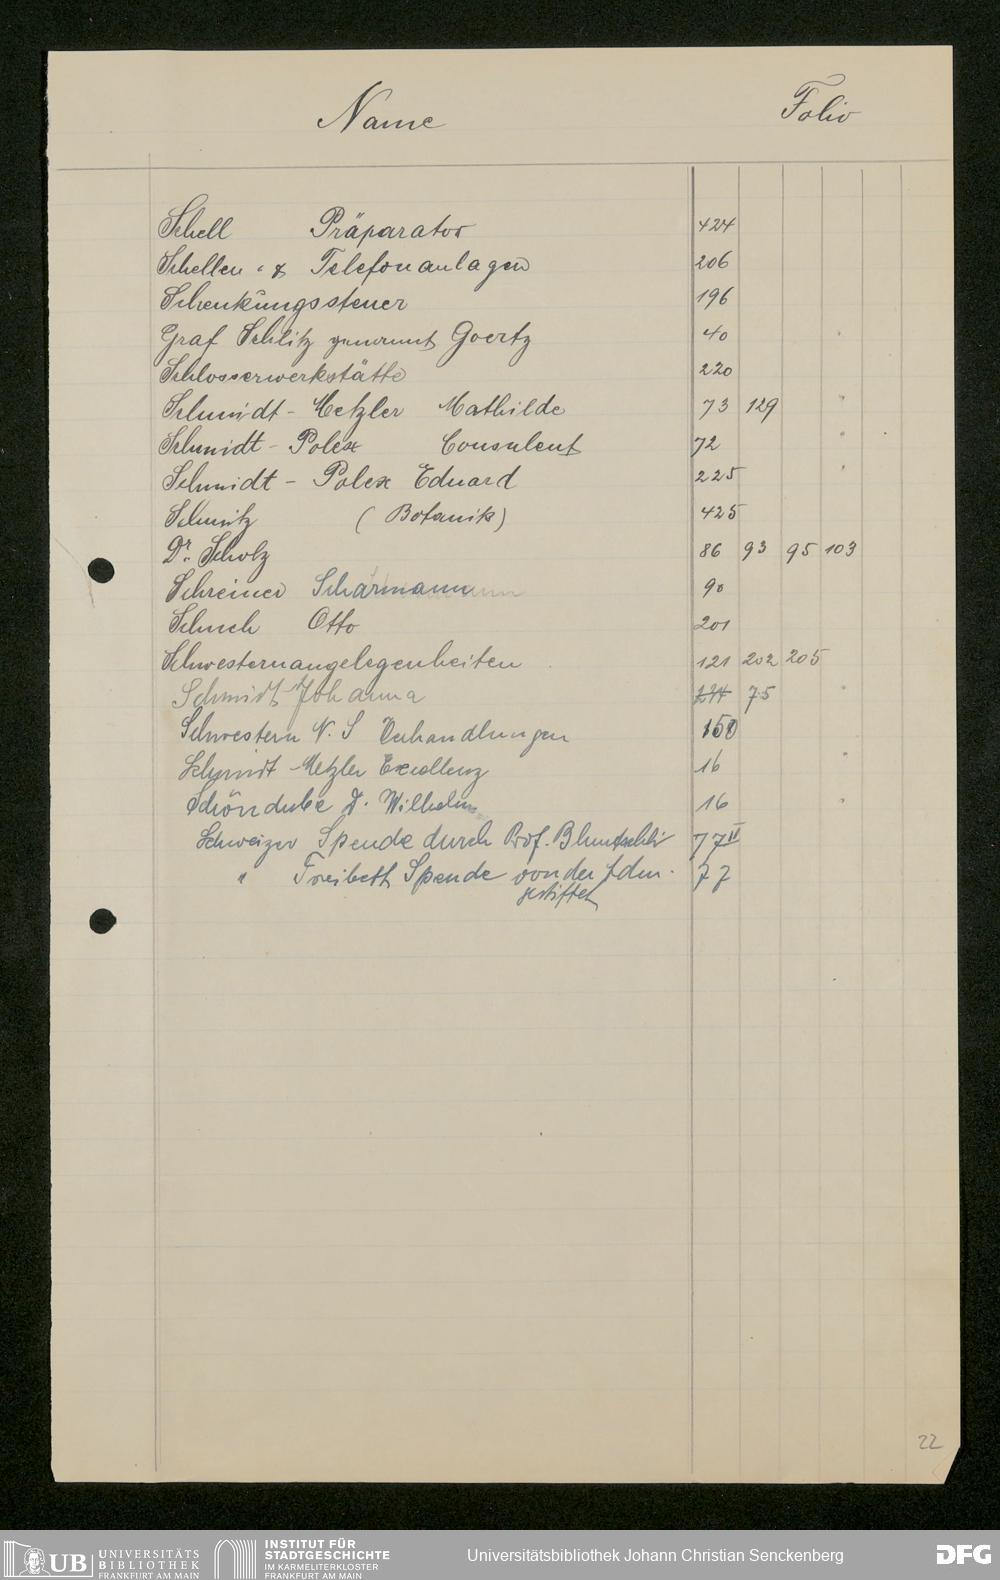 Name Folio
Schell Präparator 424
Schellen- & Telefonanlagen 206
Schenkungssteuer 196
Graf Schlitz genannt Goertz 40
Schlosserwerkstätte 220
Schmidt-Metzler Mathilde 73 129
Schmidt-Polex Consulent 72
Schmidt-Polex Eduard 225
Schmitz (Botanik) 425
Dr. Scholz 86 93 95 103
Schreiner Schärmann 90
Schuch Otto 201
Schwesternangelegenheiten 121 202 205
Schmidt Johanna 75
Schwestern N. S Verhandlungen 150
Schmidt-Metzler Excellenz 16
Schöndube Wilhelm 16
Schweizer Spende durch Prof. Bluntschli 77 II
" Freibett Spende von der Adm. 77
gestiftet
22
UB UNIVERSITÄTS
BIBLIOTHEK
FRANKFURT AM MAIN
INSTITUT FÜR
STADTGESCHICHTE
IM KARMELITERKLOSTER
FRANKFURT AM MAIN
Universitätsbibliothek Johann Christian Senckenberg
DFG